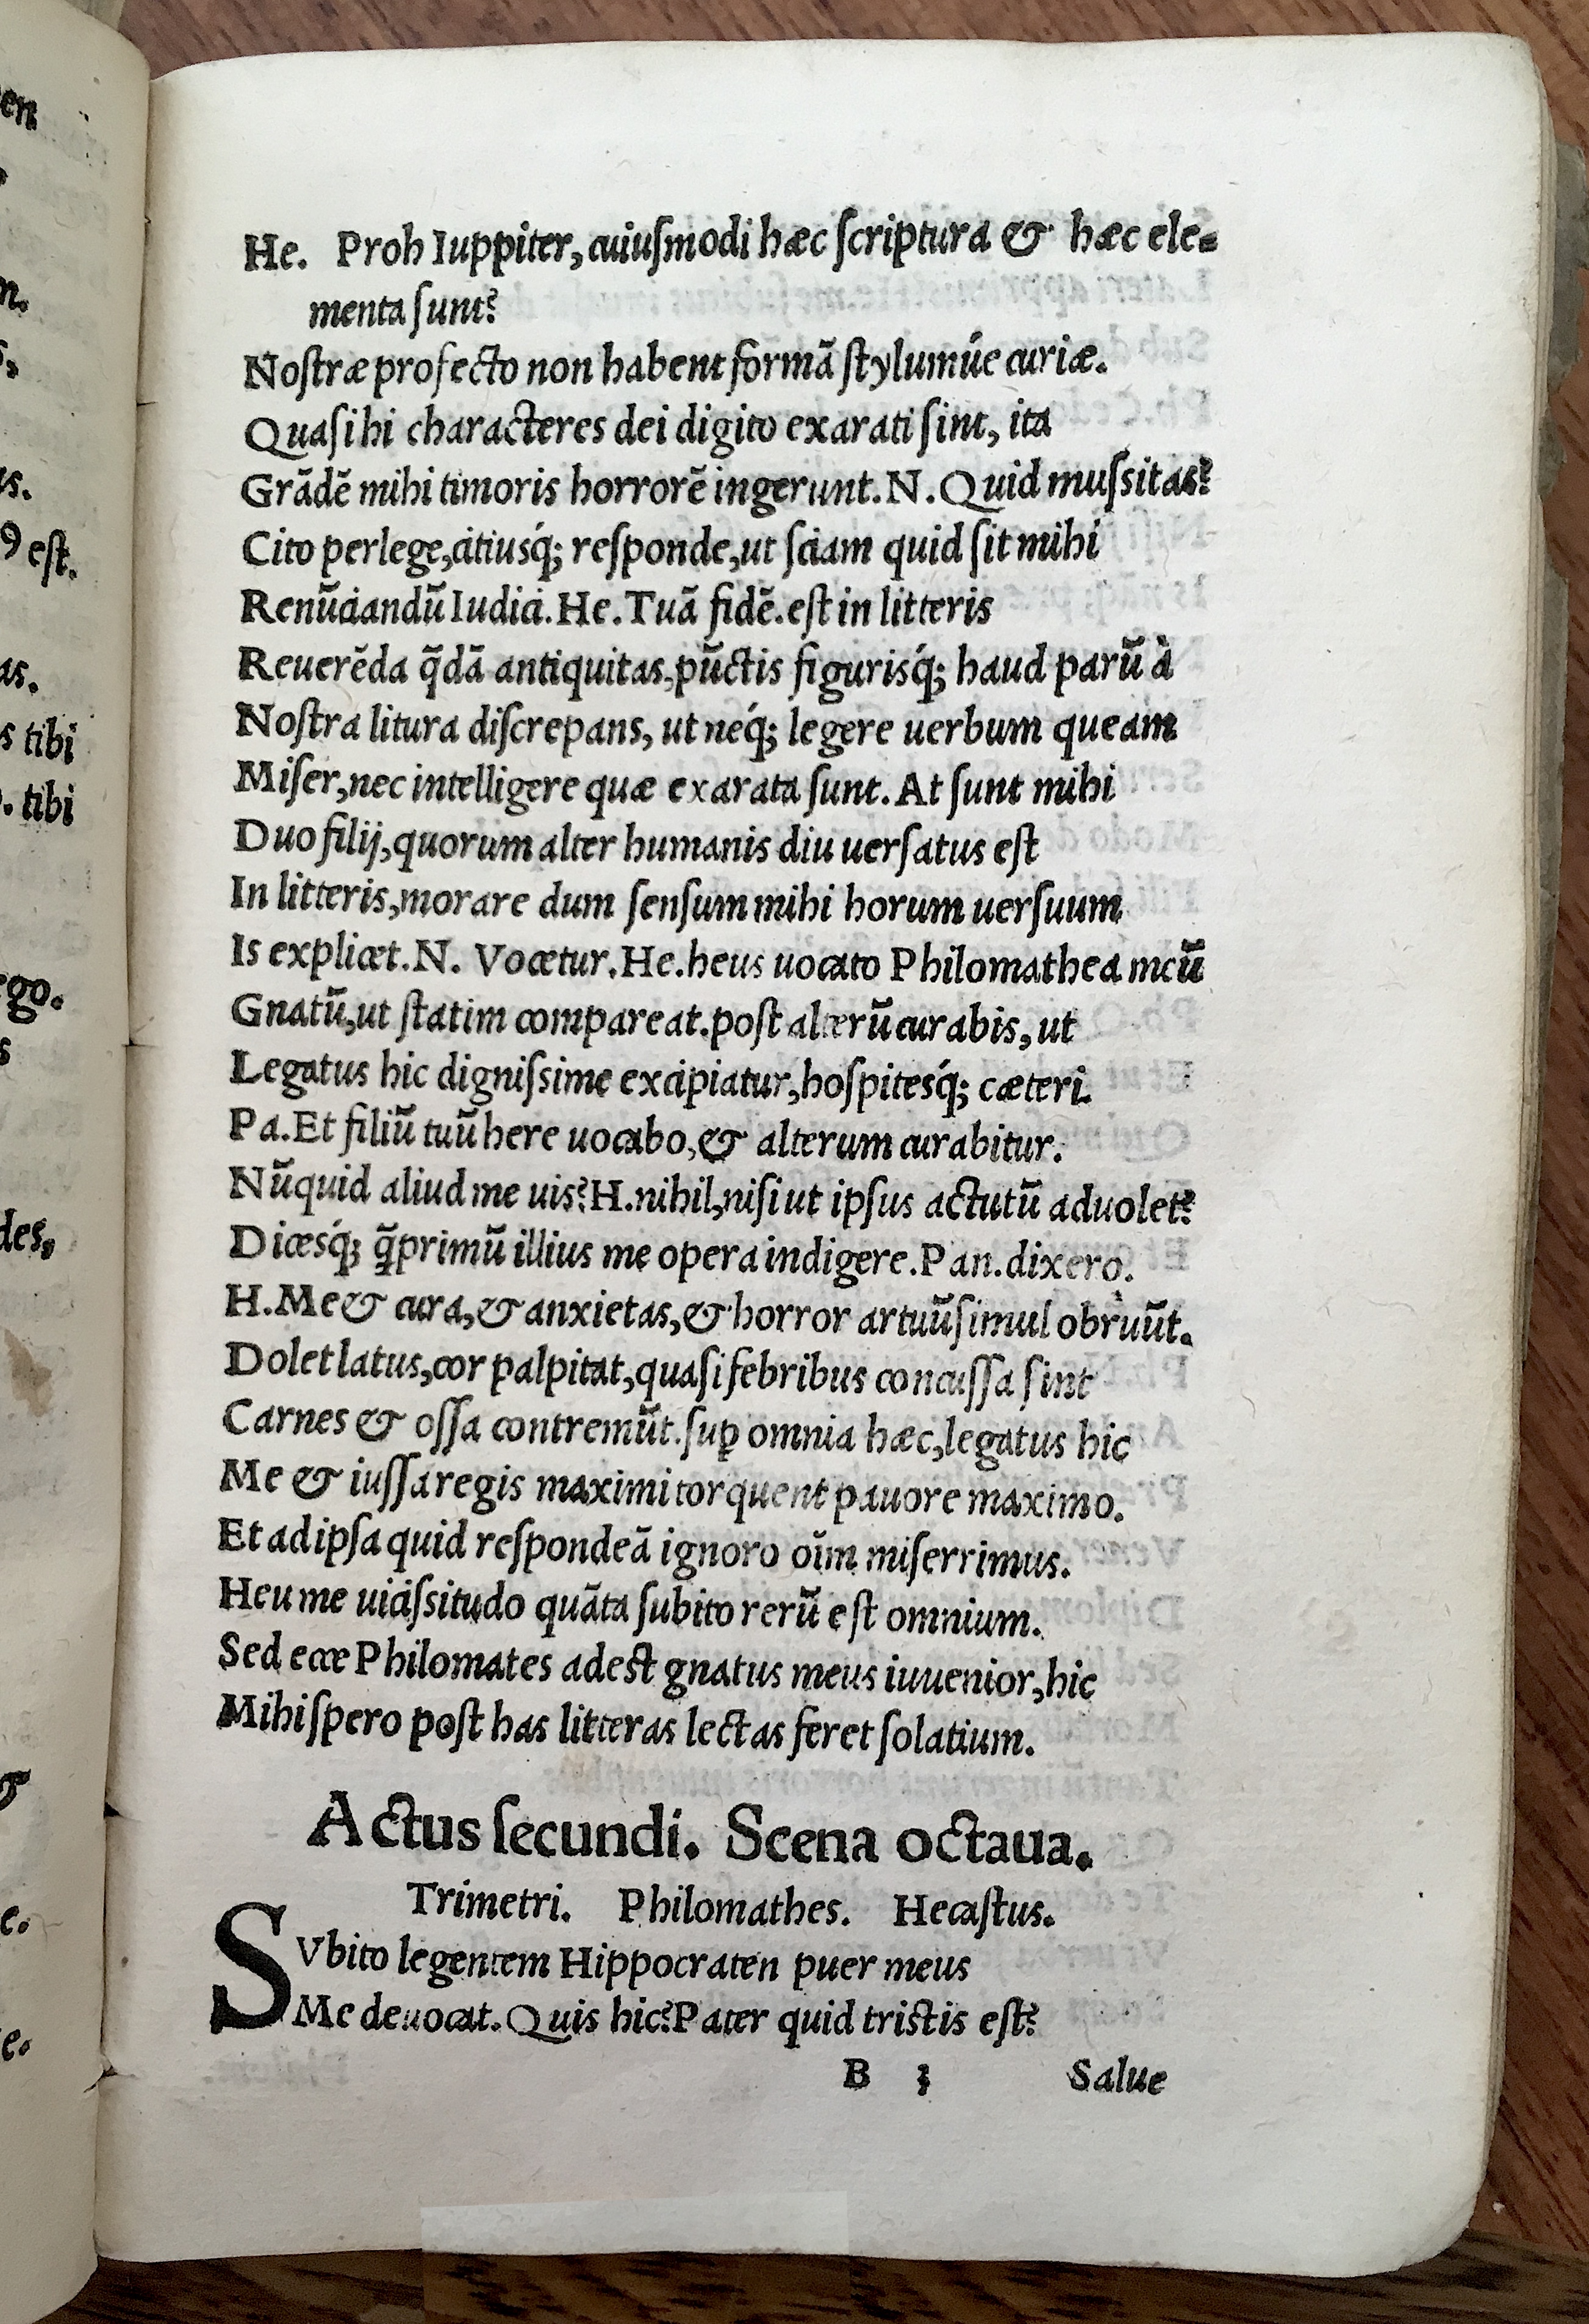 He. Proh Iuppiter, cuiuſmodi hæc ſcriptura & hæc ele=
menta ſunt?
Noſtræ profecto non habent formã ſtylumúe curiæ.
Quaſi hi characteres dei digito exarati ſint, ita
Grãdẽ mihi timoris horrorẽ ingerunt. N. Quid muſsitas?
Cito perlege, citiusq́; reſponde, ut ſciam quid ſit mihi
Renũciandũ Iudici. He. Tuã fidẽ. eſt in litteris
Reuerẽda q̃dã antiquitas, pũctis figurisq́; haud parũ à
Noſtra litura diſcrepans, ut neq́; legere uerbum queam
Miſer, nec intelligere quæ exarata ſunt. At ſunt mihi
Duo filij, quorum alter humanis diu uerſatus eſt
In litteris, morare dum ſenſum mihi horum uerſuum
Is explicet. N. Vocetur. He. heus uocato Philomathea meũ
Gnatũ, ut ſtatim compareat. poſt alterũ curabis, ut
Legatus hic digniſsime excipiatur, hoſpitesq́; cæteri.
Pa. Et filiũ tuũ here uocabo, & alterum curabitur.
Nũquid aliud me uis? H. nihil, niſi ut ipſus actutũ aduolet?
Dicesq́; q̃primũ illius me opera indigere. Pan. dixero.
H. Me & cura, & anxietas, & horror artuũ ſimul obruũt.
Dolet latus, cor palpitat, quaſi febribus concuſſa ſint
Carnes & oſſa contremũt. ſuꝑ omnia hæc, legatus hic
Me & iuſſa regis maximi torquent pauore maximo.
Et ad ipſa quid reſpondeã ignoro oĩm miſerrimus.
Heu me uiciſsitudo quãta ſubito rerũ eſt omnium.
Sed ecce Philomates adeſt gnatus meus iuuenior, hic
Mihi ſpero poſt has litteras lectas feret ſolatium.
Actus ſecundi. Scena octaua.
Trimetri. Philomathes. Hecaſtus.
SVbito legentem Hippocraten puer meus
Me deuocat. Quis hic? Pater quid triſtis eſt?
B 3 Salue